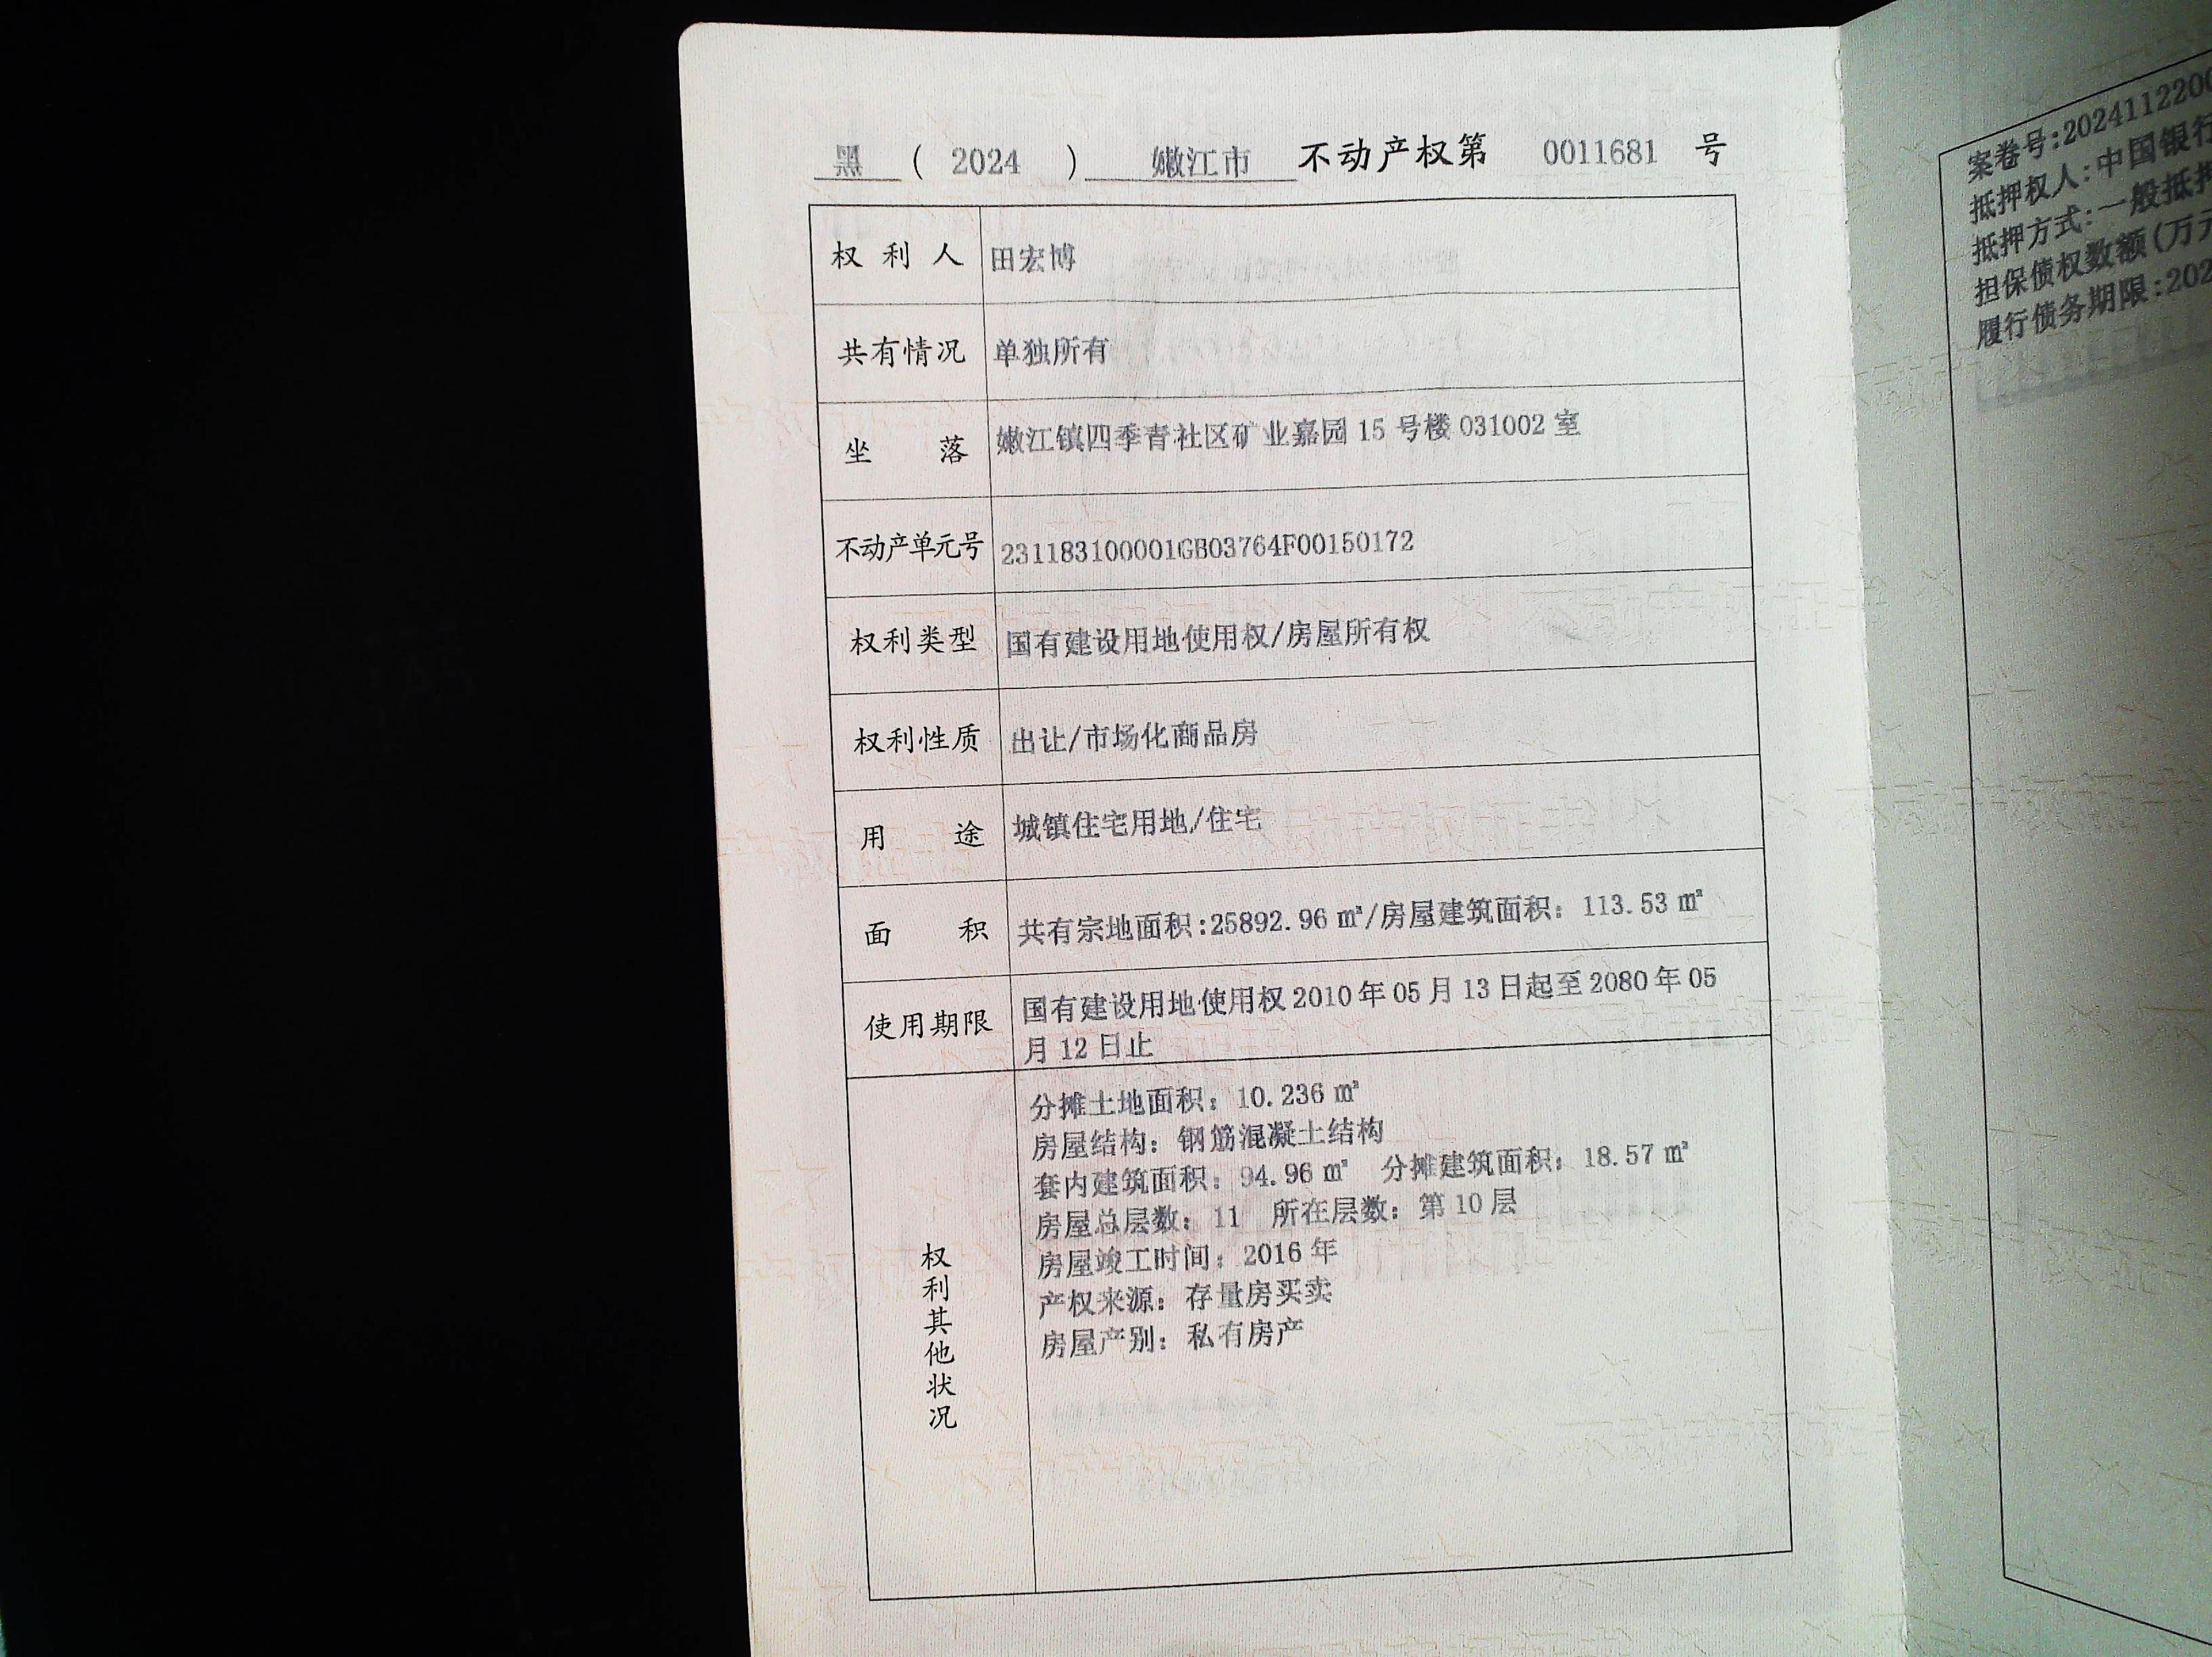 黑 ( 2024 ) 嫩江市 不动产权第 0011681 号
权利人 田宏博
共有情况 单独所有
坐落 嫩江镇四季青社区矿业嘉园 15 号楼 031002 室
不动产单元号 231183100001GB03764F00150172
权利类型 国有建设用地使用权/房屋所有权
权利性质 出让/市场化商品房
用途 城镇住宅用地/住宅
面积 共有宗地面积:25892.96 ㎡/房屋建筑面积: 113.53 ㎡
使用期限 国有建设用地使用权 2010 年 05 月 13 日起至 2080 年 05
月 12 日止
权利其他状况
分摊土地面积: 10.236 ㎡
房屋结构: 钢筋混凝土结构
套内建筑面积: 94.96 ㎡ 分摊建筑面积: 18.57 ㎡
房屋总层数: 11 所在层数: 第 10 层
房屋竣工时间: 2016 年
产权来源: 存量房买卖
房屋产别: 私有房产
案卷号:202411220
抵押权人:中国银行
抵押方式:一般抵押
担保债权数额(万元
履行债务期限:202